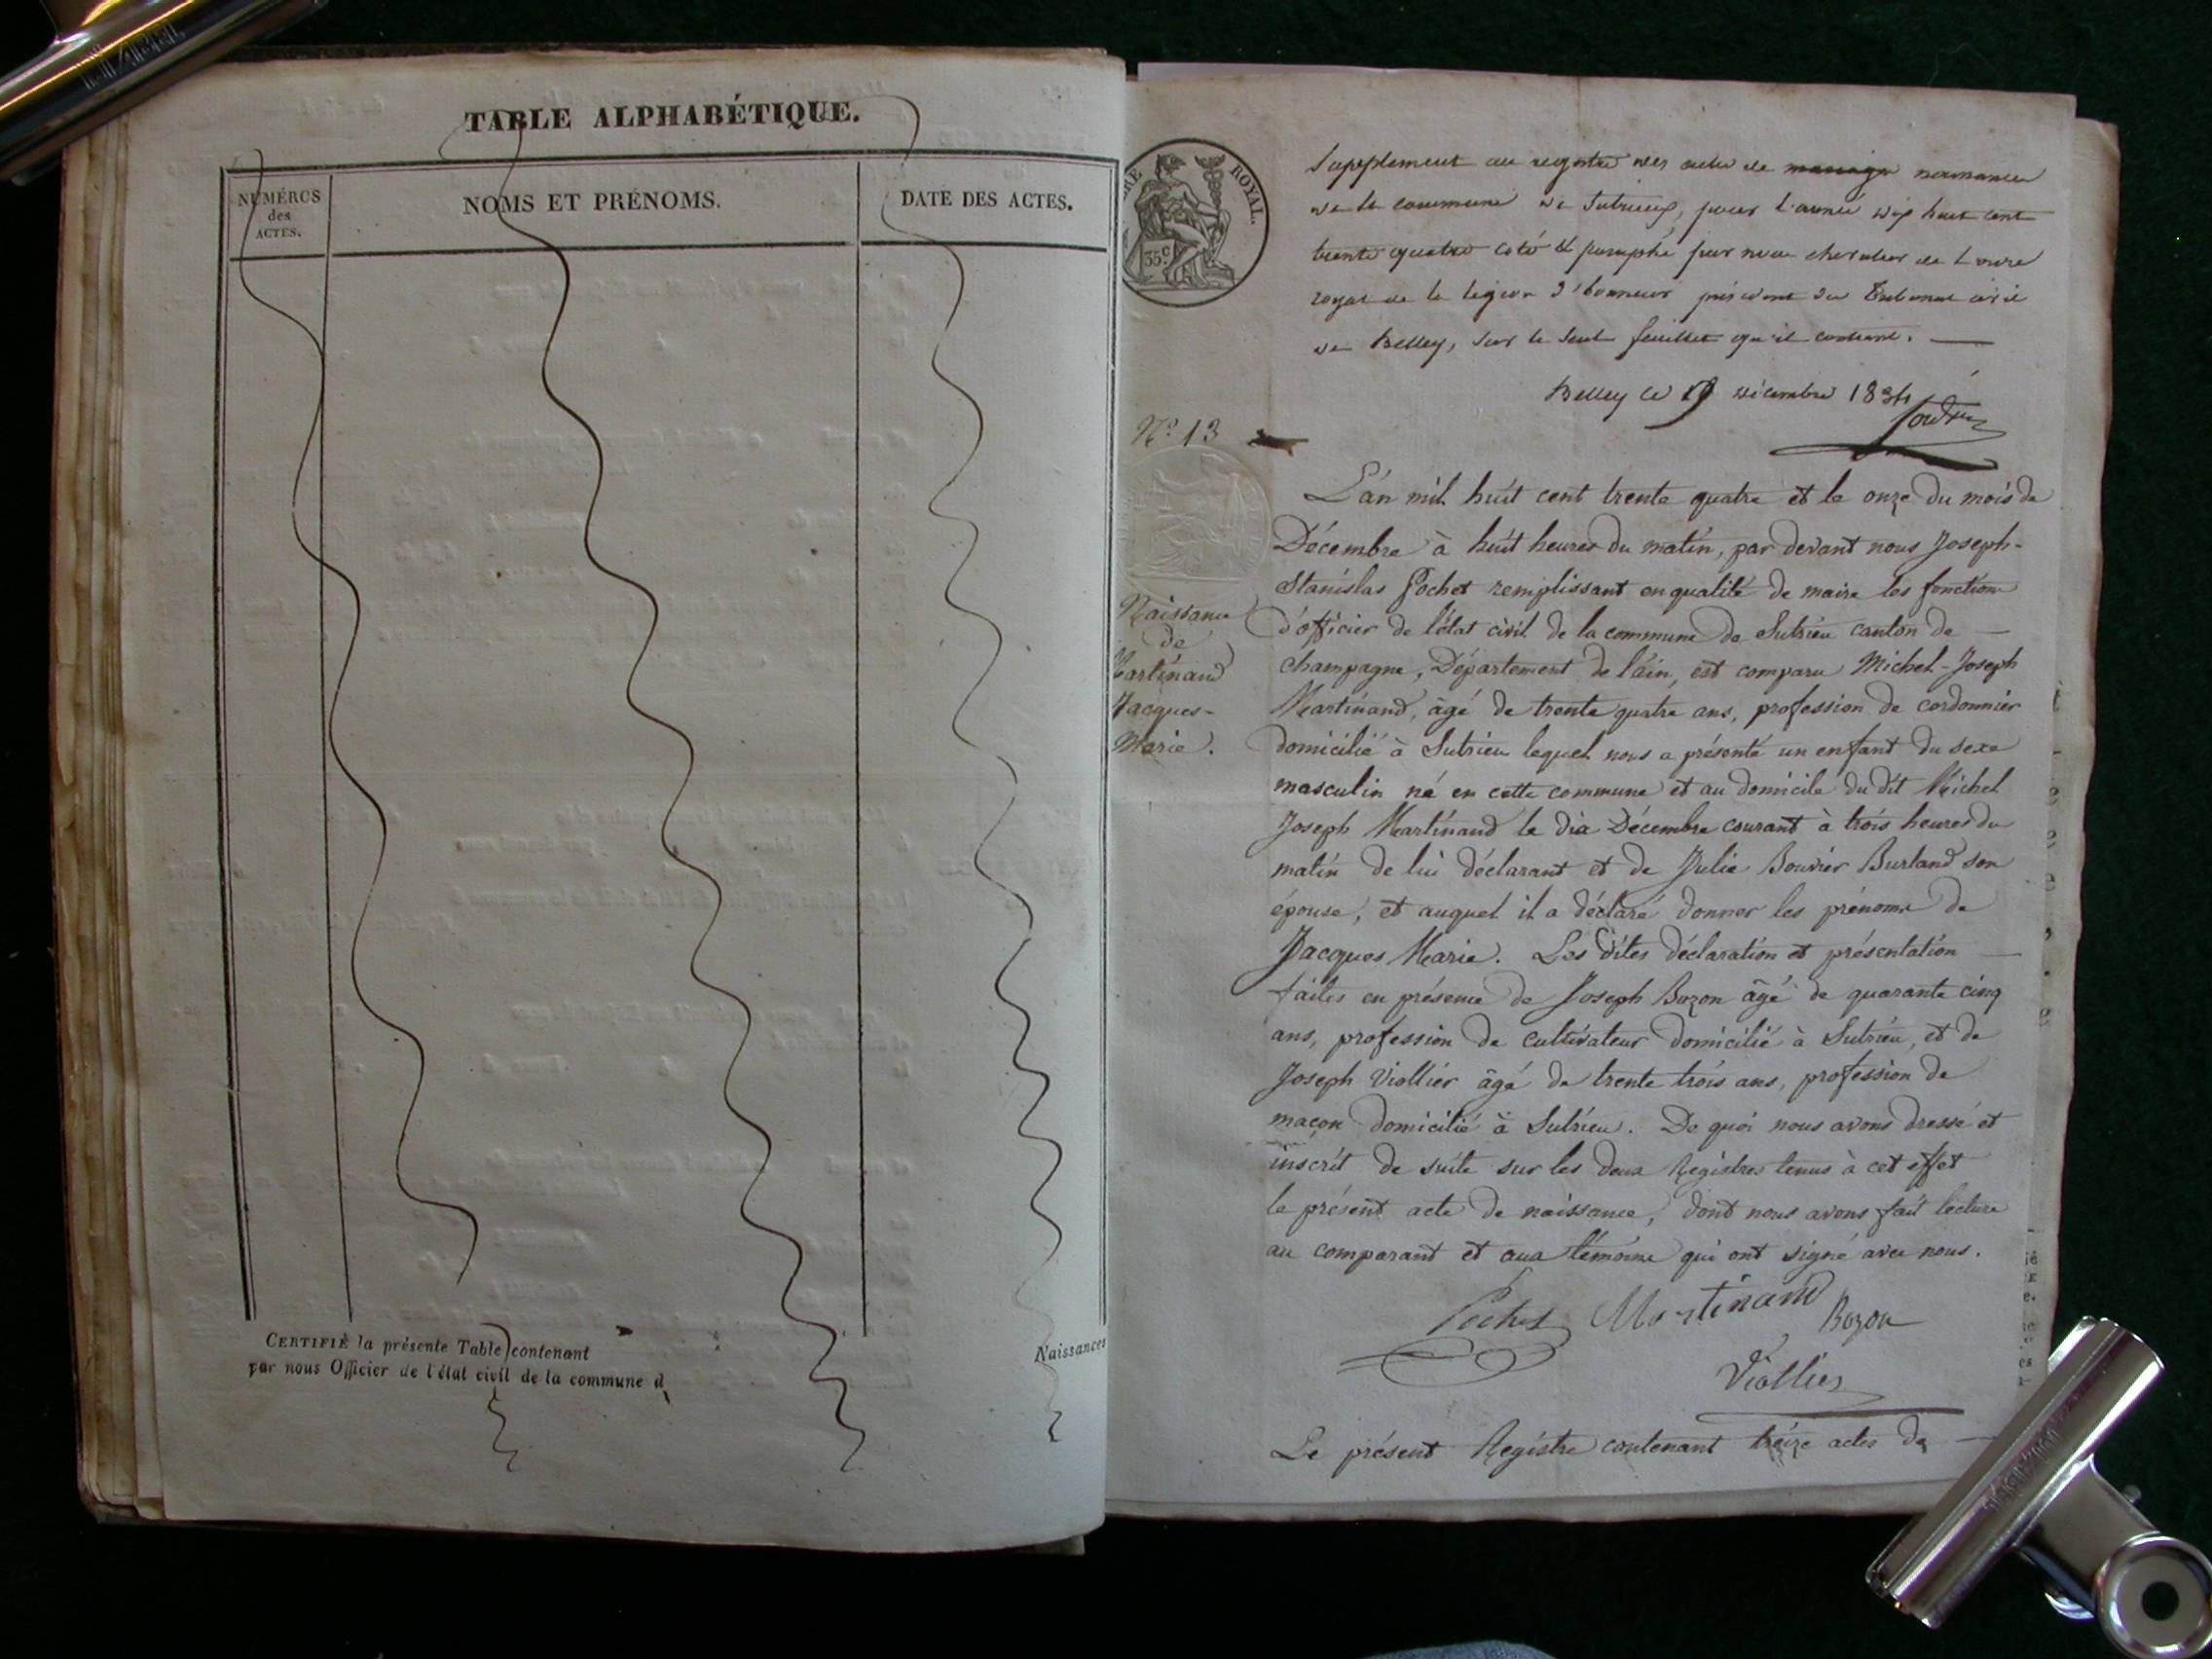 TABLE ALPHABÉTIQUE.
NUMÉROS
des
ACTES.
NOMS ET PRÉNOMS.
DATE DES ACTES.
CERTIFIÉ la présente Table contenant
Naissances
par nous Officier de l'état civil de la commune d
ROYAL.
35 c
Supplement au registre des actes de mariage naissances
de la commune de Sutrieux, pour l'année dix huit cent
trente quatre coté & paraphé par nous chevalier de l'ordre
royal de la legion d'honneur président du Tribunal civil
de Belley, sur le seul feuillet qu'il contient.
Belley le 19 décembre 1834
N° 13
Naissance
de
Martinand
Jacques-
Marie.
L'an mil huit cent trente quatre et le onze du mois de
Décembre à huit heures du matin, par devant nous Joseph-
Stanislas Pochet remplissant en qualité de maire les fonctions
d'officier de l'état civil de la commune de Sutrieu canton de
champagne, Département de l'ain, est comparu Michel-Joseph
Martinand, âgé de trente quatre ans, profession de cordonnier
domicilié à Sutrieu lequel nous a présenté un enfant du sexe
masculin né en cette commune et au domicile du dit Michel
Joseph Martinand le dix Décembre courant à trois heures du
matin de lui déclarant et de Julie Bouvier Burland son
épouse, et auquel il a déclaré donner les prénoms de
Jacques Marie. Les dites déclaration et présentation
faites en présence de Joseph Bozon âgé de quarante cinq
ans, profession de cultivateur domicilié à Sutrieu, et de
Joseph Viollier âgé de trente trois ans, profession de
maçon domicilié à Sutrieu. De quoi nous avons dressé et
inscrit de suite sur les deux Registres tenus à cet effet
le présent acte de naissance, dont nous avons fait lecture
au comparant et aux témoins qui ont signé avec nous.
Pochet Martinand Bozon
Viollier
Le présent Registre contenant treize actes de